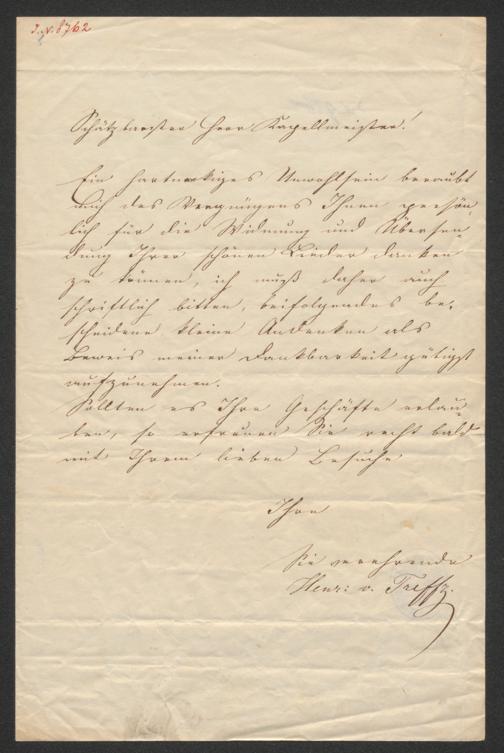 I.N. 8762
Schätzbarster Herr Kapellmeister!
Ein hartnäckiges Unwohlsein beraubt
mich des Vergnügens Ihnen persön-
lich für die Widmung und Übersen-
dung Ihrer schönen Lieder danken
zu können, ich muß daher auch
schriftlich bitten, beifolgendes be-
scheidene kleine Andenken als
Beweis meiner Dankbarkeit gütigst
aufzunehmen.
Sollten es Ihre Geschäfte erlau-
ben, so erfreuen Sie recht bald
mit Ihrem lieben Besuche
Ihre
Sie verehrende
Henri: v. Treffz.